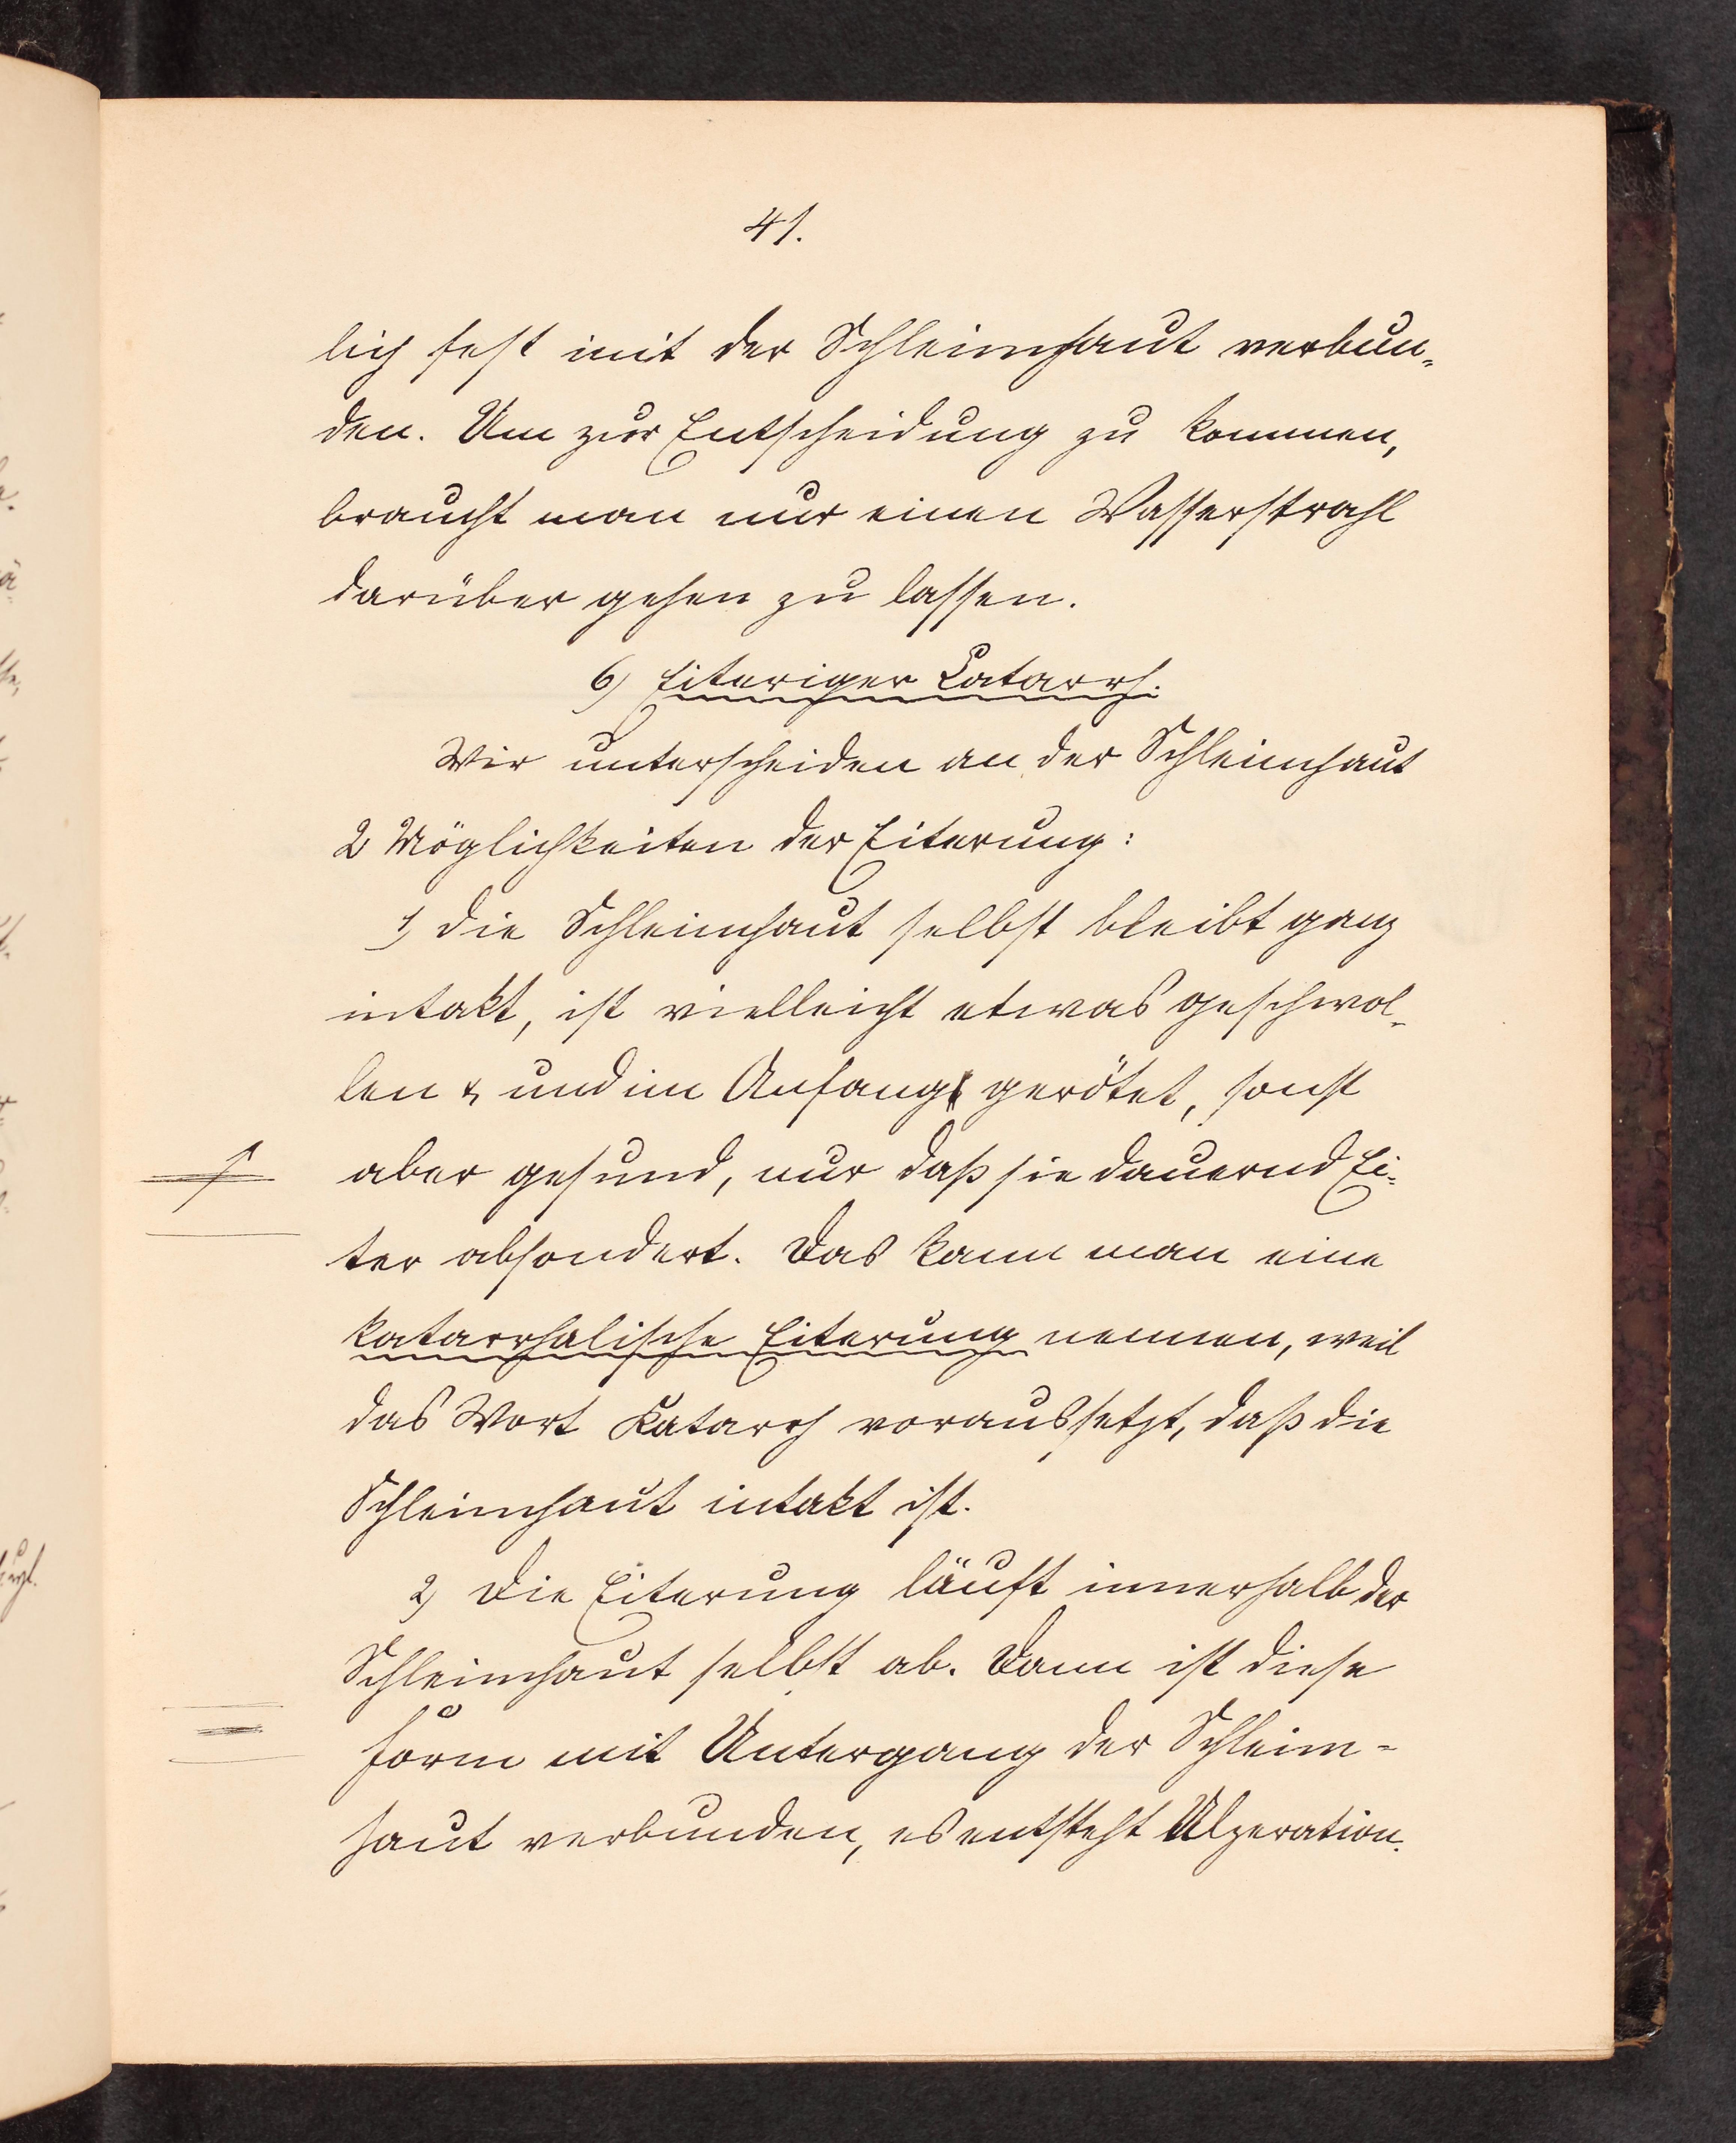 41.
lich fest mit der Schleimhaut verbun-
den. Um zur Entscheidung zu kommen,
braucht man nur einen Wasserstrahl
darüber gehen zu lassen.
6) Eiteriger Catarrh.
Wir unterscheiden an der Schleimhaut
2 Möglichkeiten der Eiterung:
1) die Schleimhaut selbst bleibt ganz
intakt, ist vielleicht etwas geschwol-
len & und im Anfang gerötet, sonst
aber gesund, nur daß sie dauernd Ei-
ter absondert. Das kann man eine
katarrhalische Eiterung nennen, weil
das Wort Katarrh voraussetzt, daß die
Schleimhaut intakt ist.
2) Die Eiterung läuft innerhalb der
Schleimhaut selbst ab. Dann ist diese
Form mit Untergang der Schleim-
haut verbunden, es entsteht Ulzeration.